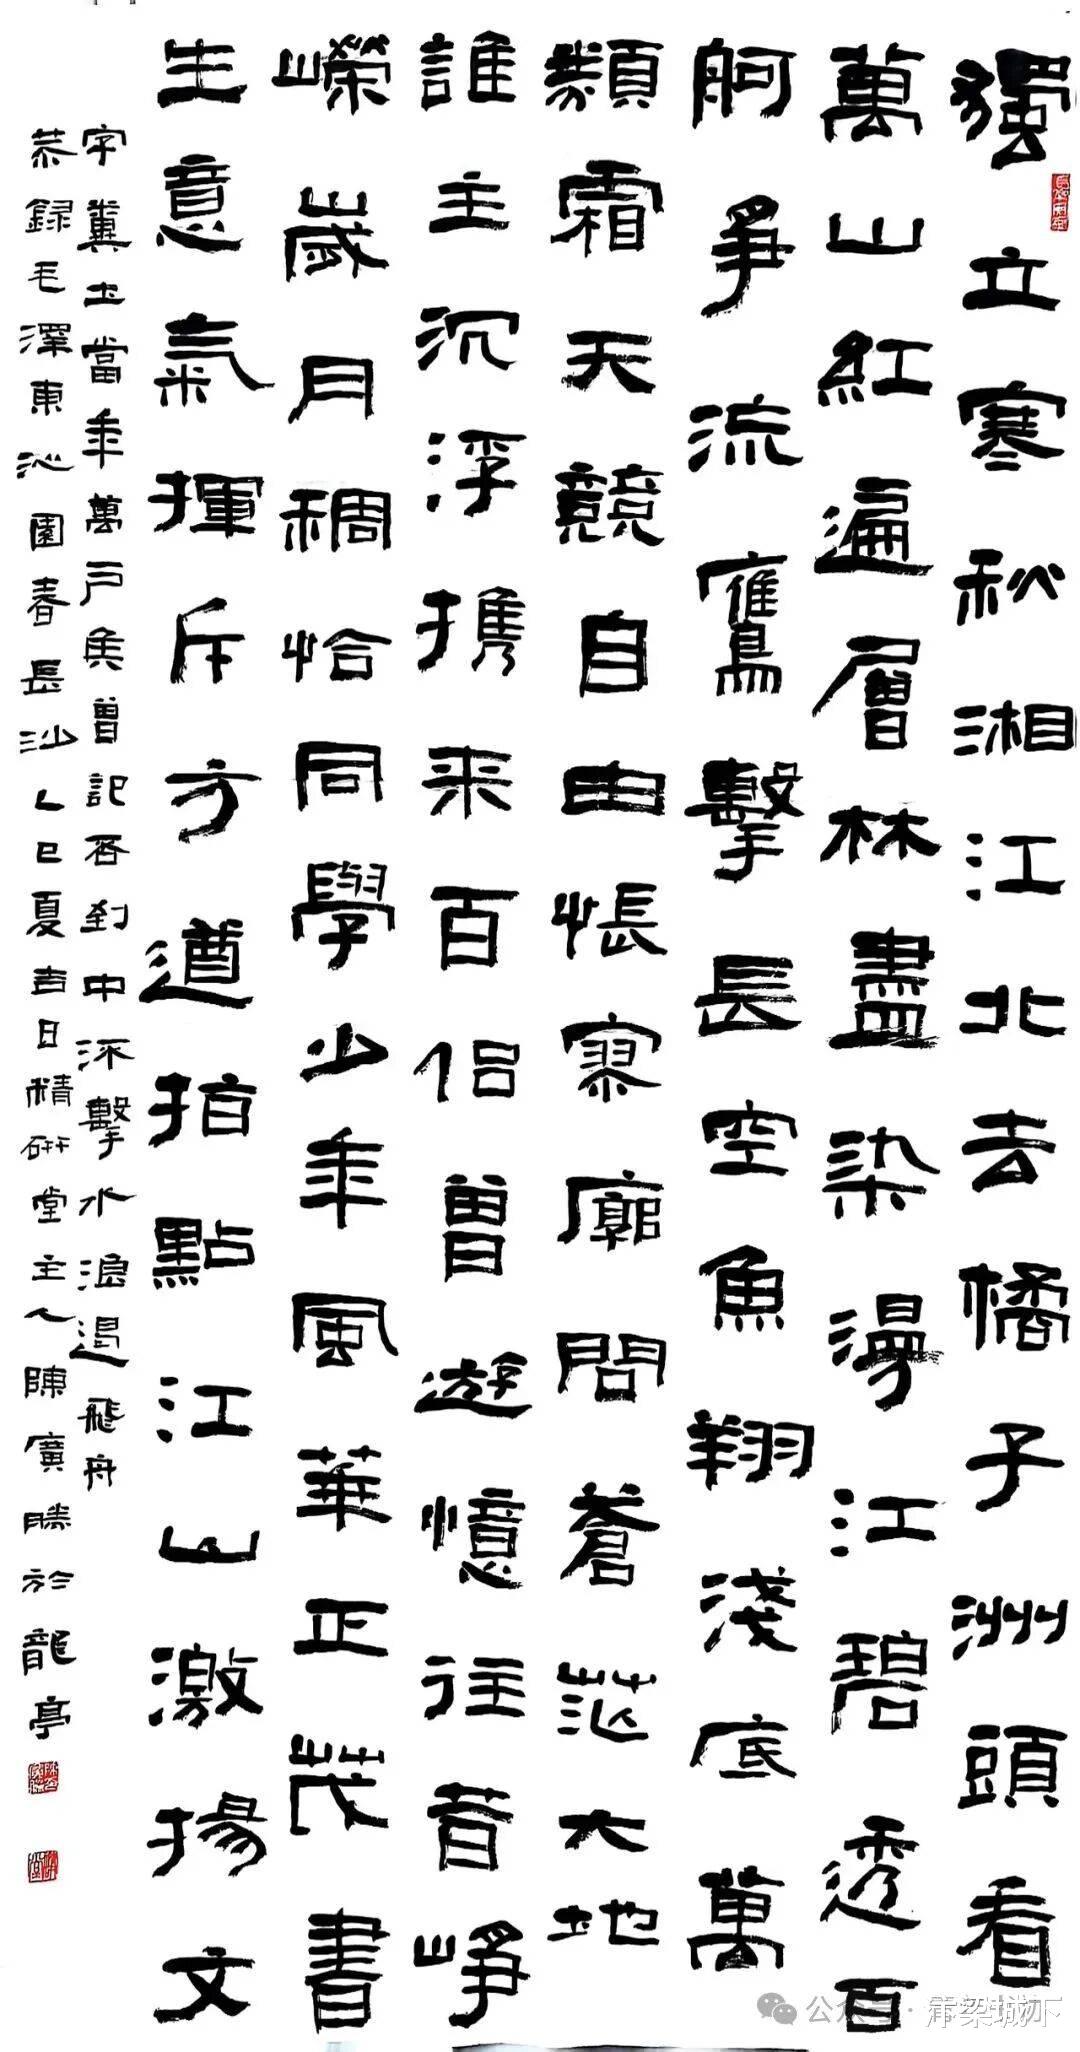 獨立寒秋湘江北去橘子洲頭看
萬山紅遍層林盡染漫江碧透百
舸爭流鷹擊長空魚翔淺底萬
類霜天競自由悵寥廓問蒼茫大地
誰主沉浮携来百侶曾遊憶往昔崢
嶸歲月稠恰同學少年風華正茂書
生意氣揮斥方遒指點江山激揚文
字糞土當年萬戶侯曾記否到中流擊水浪遏飛舟
恭録毛澤東沁園春長沙乙巳夏吉日精研堂主人陳廣勝於龍亭
公众号